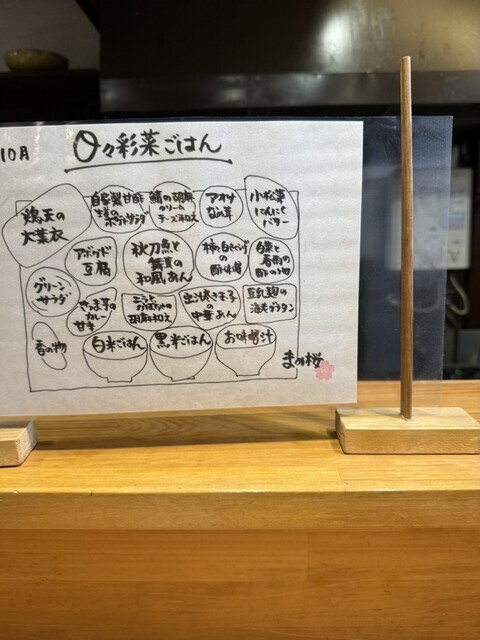 10月
日々彩菜ごはん
鶏天の
大葉衣
自家製甘酢
生姜の
ポテトサラダ
鯖の胡麻
クリーム
チーズ和え
アオサ
なめ茸
小松菜
にんにく
バター
アボカド
豆腐
秋刀魚と
舞茸の
和風あん
柿と
の
酢味噌
白菜と
春雨の
酢の物
グリーン
サラダ
さつま芋の
カレー
甘辛
胡麻和え
出汁巻き玉子
の
中華あん
豆乳麹の
グラタン
香の物
白米ごはん
黒米ごはん
お味噌汁
まめ桜